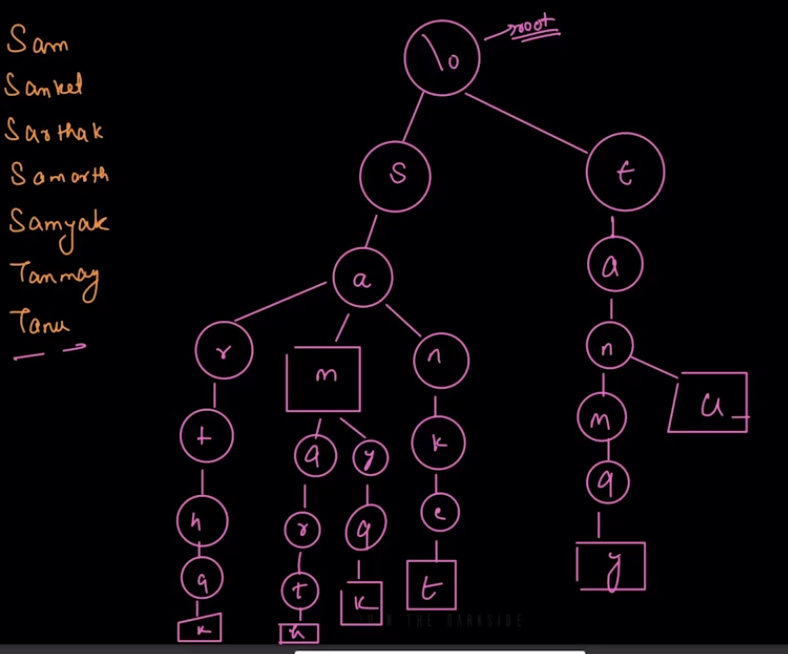 Sam
Sanket
Sarthak
Samarth
Samyak
Tanmay
Tanu
\0
root
S
t
a
a
r
m
n
n
u
t
a
y
k
m
h
r
a
e
a
a
t
k
t
y
k
h
THE DARKSIDE